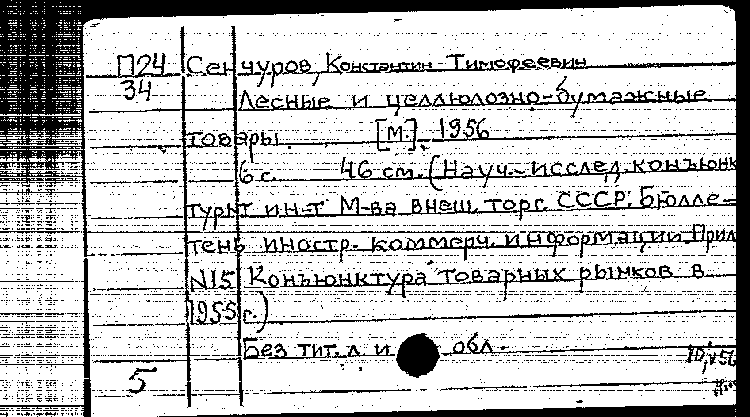 П24 Сенчуров, Константин Тимофеевич
34 Лесные и целлюлозно-бумажные
товары. [М]. 1956
6 с. 46 см. (Науч.-исслед. конъюнк
турт ин-т М-ва внеш. торг. СССР. Бюлле-
тень иностр. коммерч. информации. Прил
N15 Конъюнктура товарных рынков в
1955 г.)
Без тит. л. и обл.
5